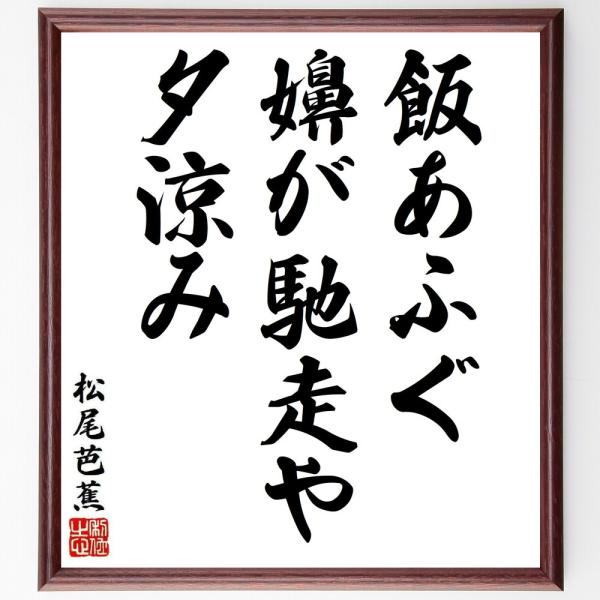 飯あふぐ
嬶が馳走や
夕涼み
松尾芭蕉